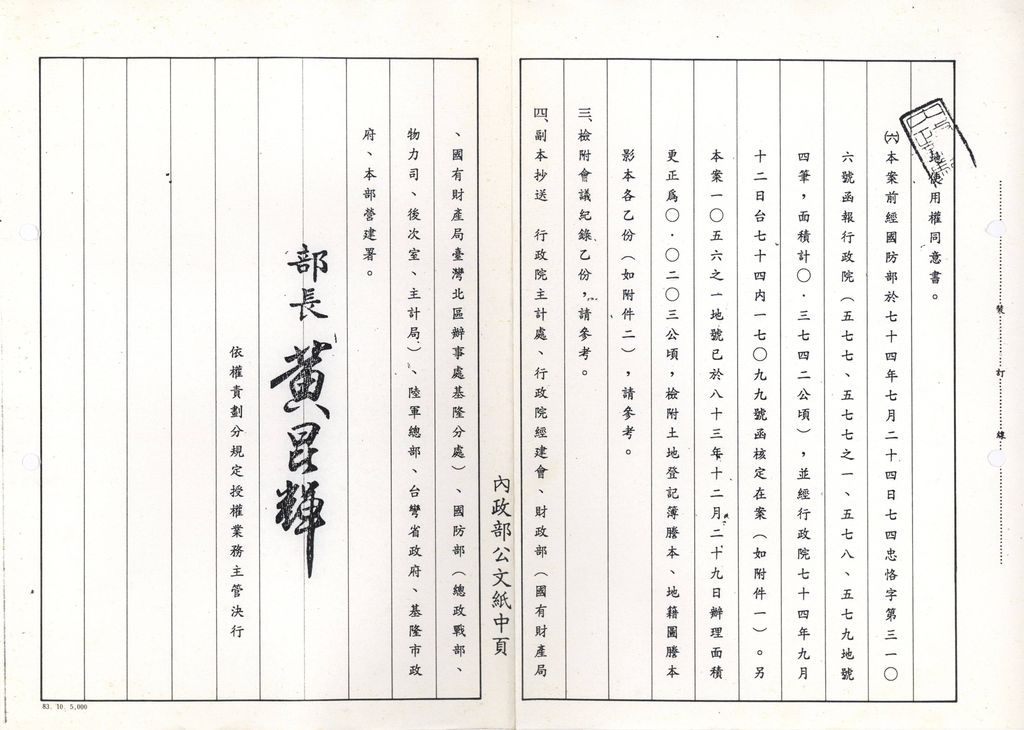 地使用權同意書。
㈥本案前經國防部於七十四年七月二十四日七四忠恪字第三一〇
六號函報行政院（五七七、五七七之一、五七八、五七九地號
四筆，面積計〇．三七四二公頃），並經行政院七十四年九月
十二日台七十四內一七〇九九號函核定在案（如附件一）。另
本案一〇五六之一地號已於八十三年十二月二十九日辦理面積
更正為〇．〇二〇三公頃，檢附土地登記簿謄本、地籍圖謄本
影本各乙份（如附件二），請參考。
三、檢附會議紀錄乙份，請參考。
四、副本抄送　行政院主計處、行政院經建會、財政部（國有財產局
、國有財產局臺灣北區辦事處基隆分處）、國防部（總政戰部、
物力司、後次室、主計局）、陸軍總部、台灣省政府、基隆市政
府、本部營建署。
部長 黃昆輝
依權責劃分規定授權業務主管決行
內政部公文紙中頁
裝訂線
83. 10. 5,000